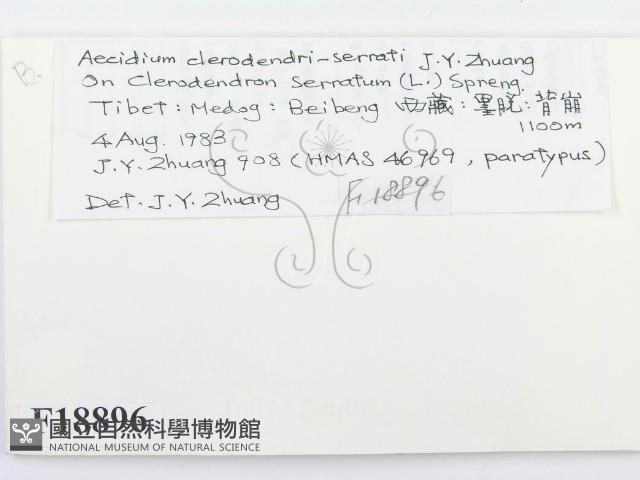 B.
Aecidium clerodendri-serrati J.Y. Zhuang
On Clerodendron serratum (L.) Spreng.
Tibet: Medog: Beibeng 西藏: 墨脱: 背崩
1100m
4 Aug. 1983
J.Y. Zhuang 908 (HMAS 46969, paratypus)
Det. J.Y. Zhuang
F18896
F18896
國立自然科學博物館
NATIONAL MUSEUM OF NATURAL SCIENCE